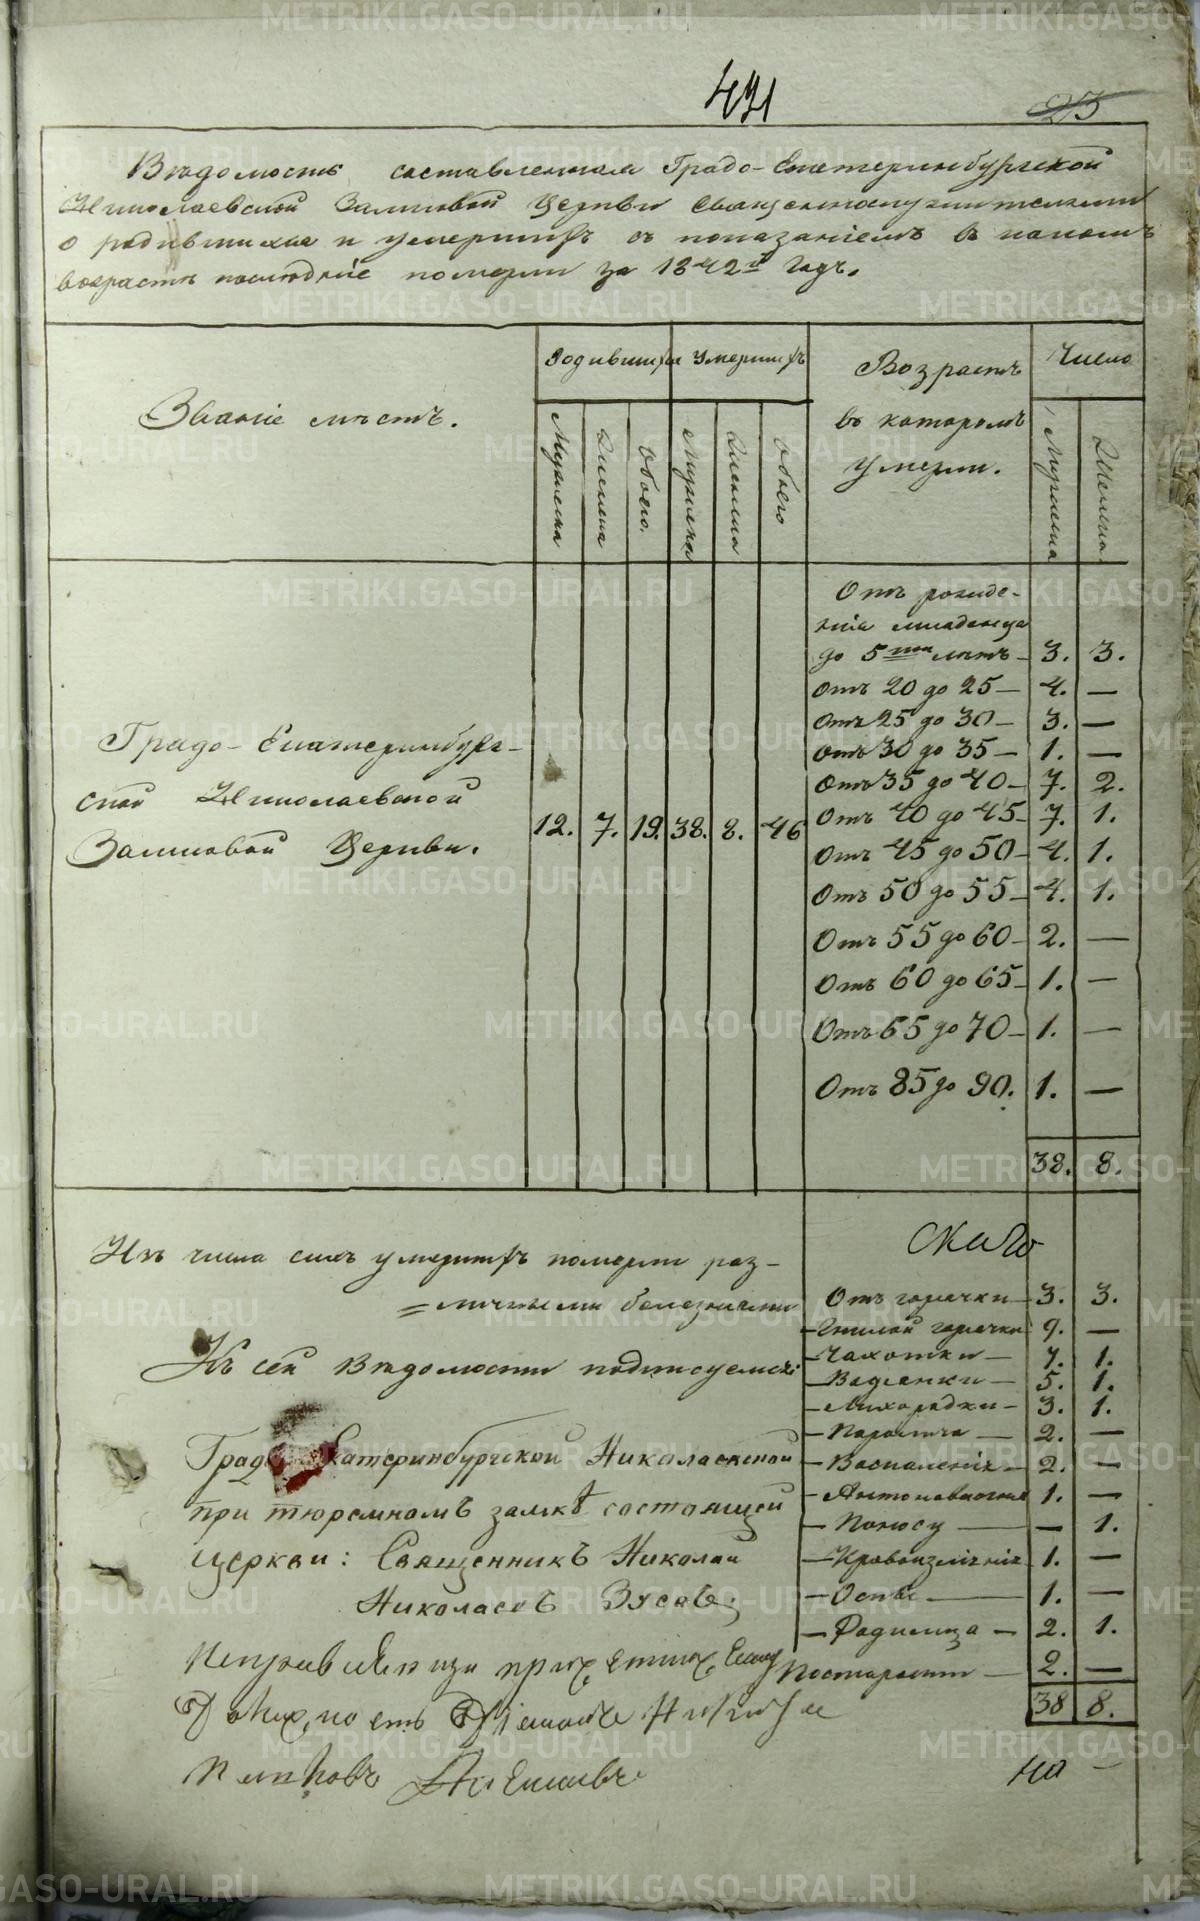 431
23
Ведомость составленная Градо-Екатеринбургской
Николаевской Замковой Церкви священнослужителями
о родившихся и умершихъ съ показаніемъ въ какомъ
возрасте последніе померли за 1842й Годъ.
Званіе местъ.
Родившихся
Умершихъ
Возрастъ
въ которомъ
умерли.
Число
Мужеска
Женска
Обоего.
Мужеска
Женска
Обоего
Мужеска
Женска
Градо-Екатеринбург-
ской Николаевской
Замковой Церкви.
12. 7. 19. 38. 8. 46
Отъ рожде-
нія младенца
до 5ти летъ - 3. 3.
Отъ 20 до 25 - 4. -
Отъ 25 до 30 - 3. -
Отъ 30 до 35 - 1. -
Отъ 35 до 40 - 7. 2.
Отъ 40 до 45 - 7. 1.
Отъ 45 до 50 - 4. 1.
Отъ 50 до 55 - 4. 1.
Отъ 55 до 60 - 2. -
Отъ 60 до 65 - 1. -
Отъ 65 до 70 - 1. -
Отъ 85 до 90. 1. -
38. 8.
Изъ числа сихъ умершихъ померли раз-
=личными болезнями
Къ сей Ведомости подписуемся:
Градо Екатеринбургской Николаевской
при тюремномъ замкѣ состоящей
церкви: Священникъ Николай
Николаевъ
Отъ горячки - 3. 3.
- Гнилой горячки 9. -
- Чахотки - 7. 1.
- Водянки - 5. 1.
- Лихорадки - 3. 1.
- Паралича - 2. -
- Воспаленія - 2. -
- Антонова огня 1. -
- Поносу - - 1.
- Кровоизлічніе 1. -
- Оспы - 1. -
- Родимца - 2. 1.
По старости - 2. -
38 8.
METRIKI.GASO-URAL.RU